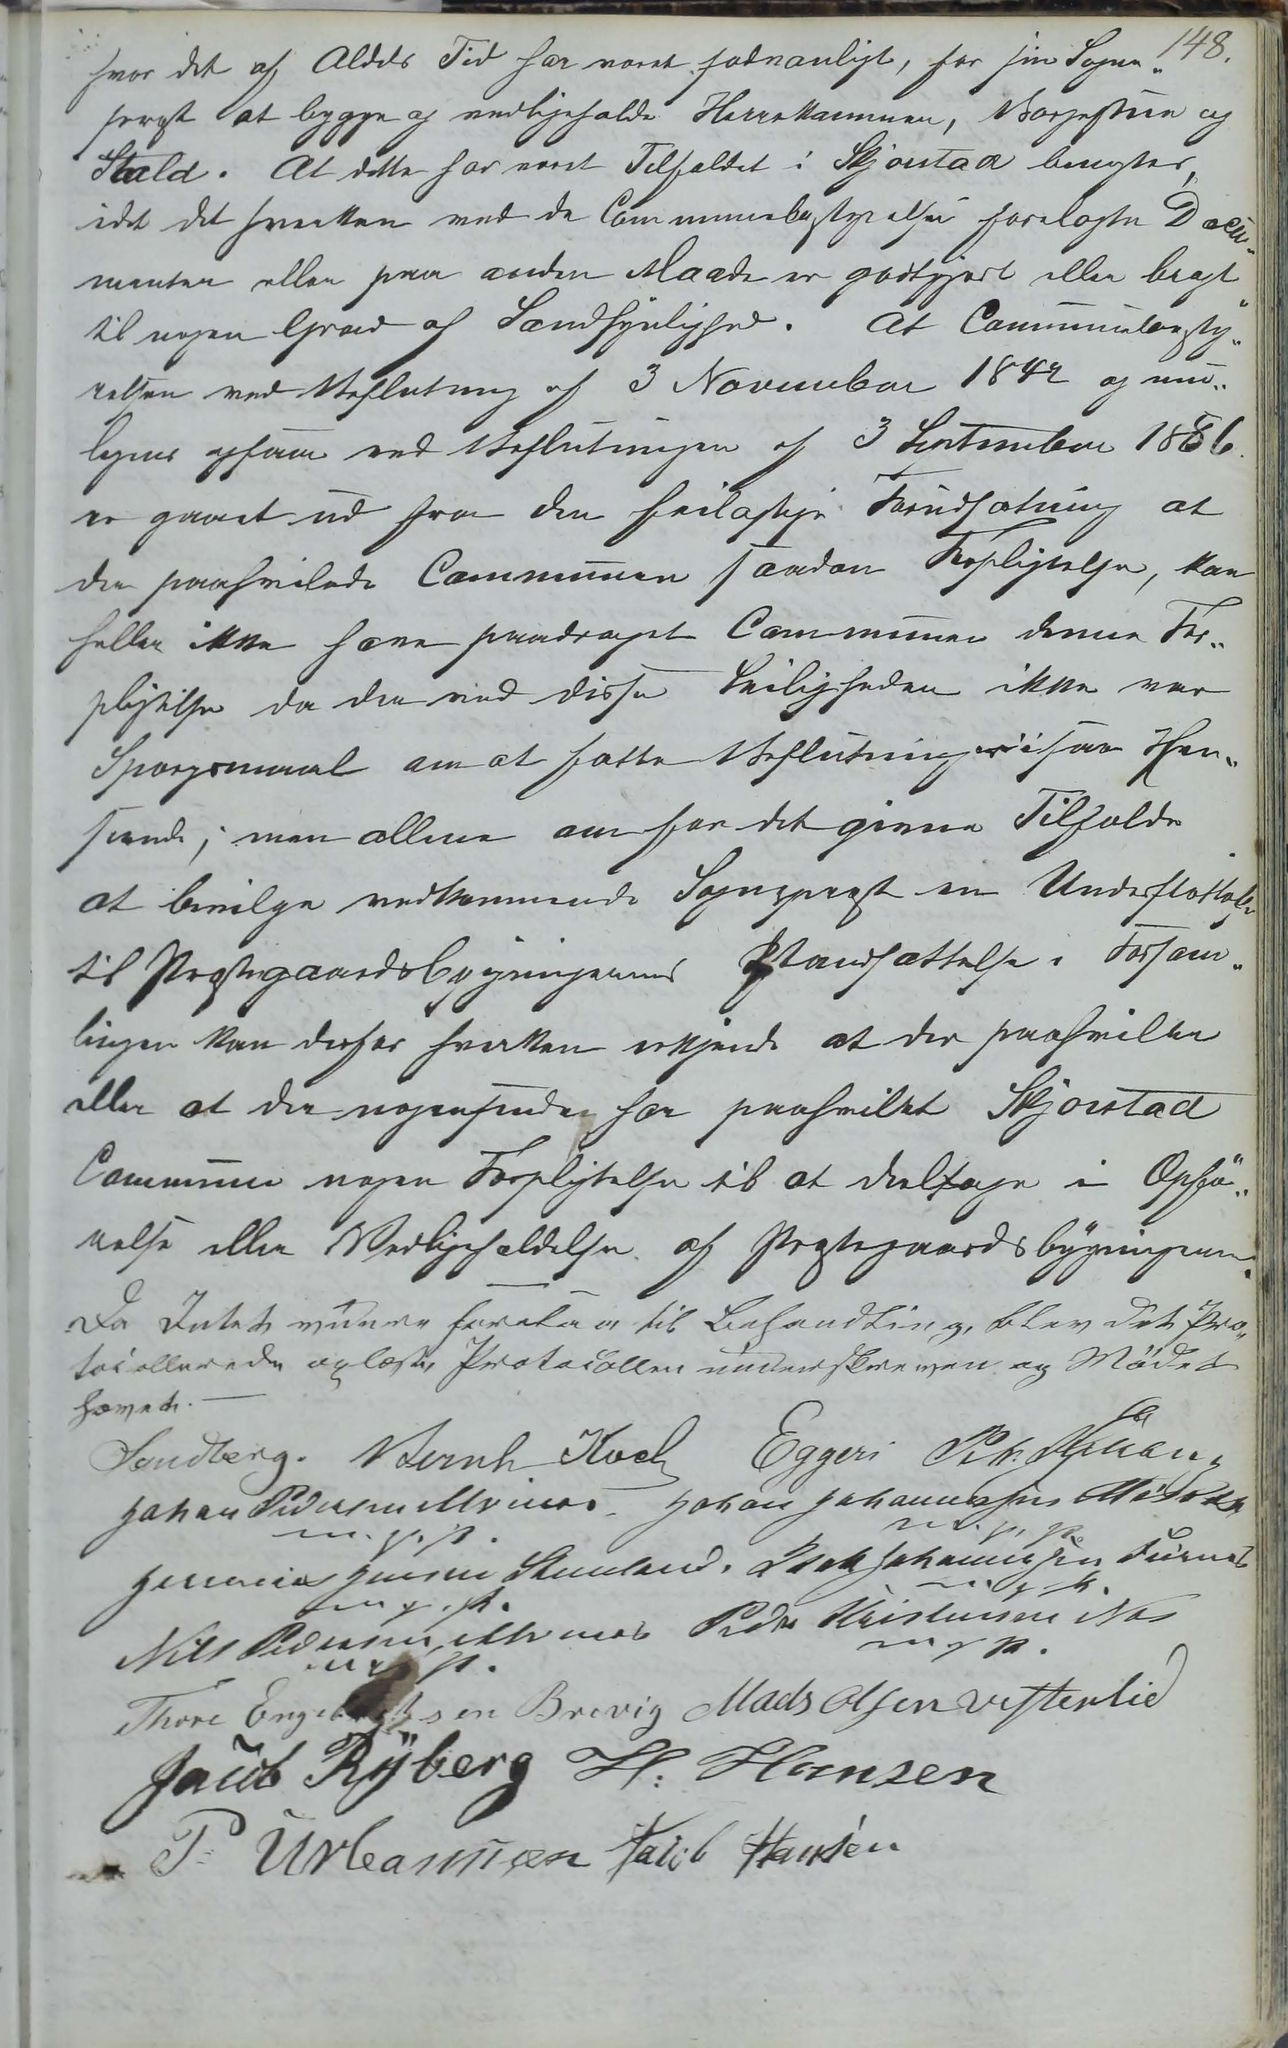 148.
hvor det af Alders Tid har været sædvanligt, for sin Sogne„
præst at bygge og vedligeholde Herrekammer, Borgestue og
Stald. At dette har været Tilfældet i Skjerstad benegtes,
idet det hverken ved de Communebestyrelsen forelagte Docu„
menter eller paa anden Maade er godtgjort eller bragt
til nogen Grad af Sandsynlighed. At Communebesty„
relsen ved Beslutning af 3 November 1842 og mu„
ligens ogsaa ved Beslutningen af 3 September 1856.
er gaaet ud fra den feilagtige Forudsætning at
der paahvilede Communen saadan Forpligtelse, kan
heller ikke have paadraget Communen denne For„
pligtelse da der ved disse Leiligheder ikke var
Spørgsmaal om at fatte Beslutning i saa Hen„
seende; men allene om for det givne Tilfælde
at bevilge vedkommende Sogneprest en Understøttelse
til Prestegaardsbygningernes Istandsættelse. Forsam„
lingen kan derfor hverken erkjende at der paahviler
eller at der nogensinde har paahvilet Skjerstad
Commune nogen Forpligtelse til at deeltage i Opfø„
relse eller Vedligeholdelse af Prestegaardsbygningerne.
Da Intet videre foretaa til Behandling, blev det Pro„
tocollerede oplæst, Protocollen underskreven og Mödet
hævet. —
Sandberg. Bernh Koch Eggen
Johan Pedersen Johan Johannesen
m. p. P. m. p. P.
Jensen Johannesen
m. p. P. m. p. P.
Nils Pedersen Peder Kristensen Næs
m. p. P. m. p. P.
Thore Engebrigtsen Brevig Mads Olsen Vesterlid
Jacob Ryberg H. Hansen
P. Urbanusen Jacob Hansen